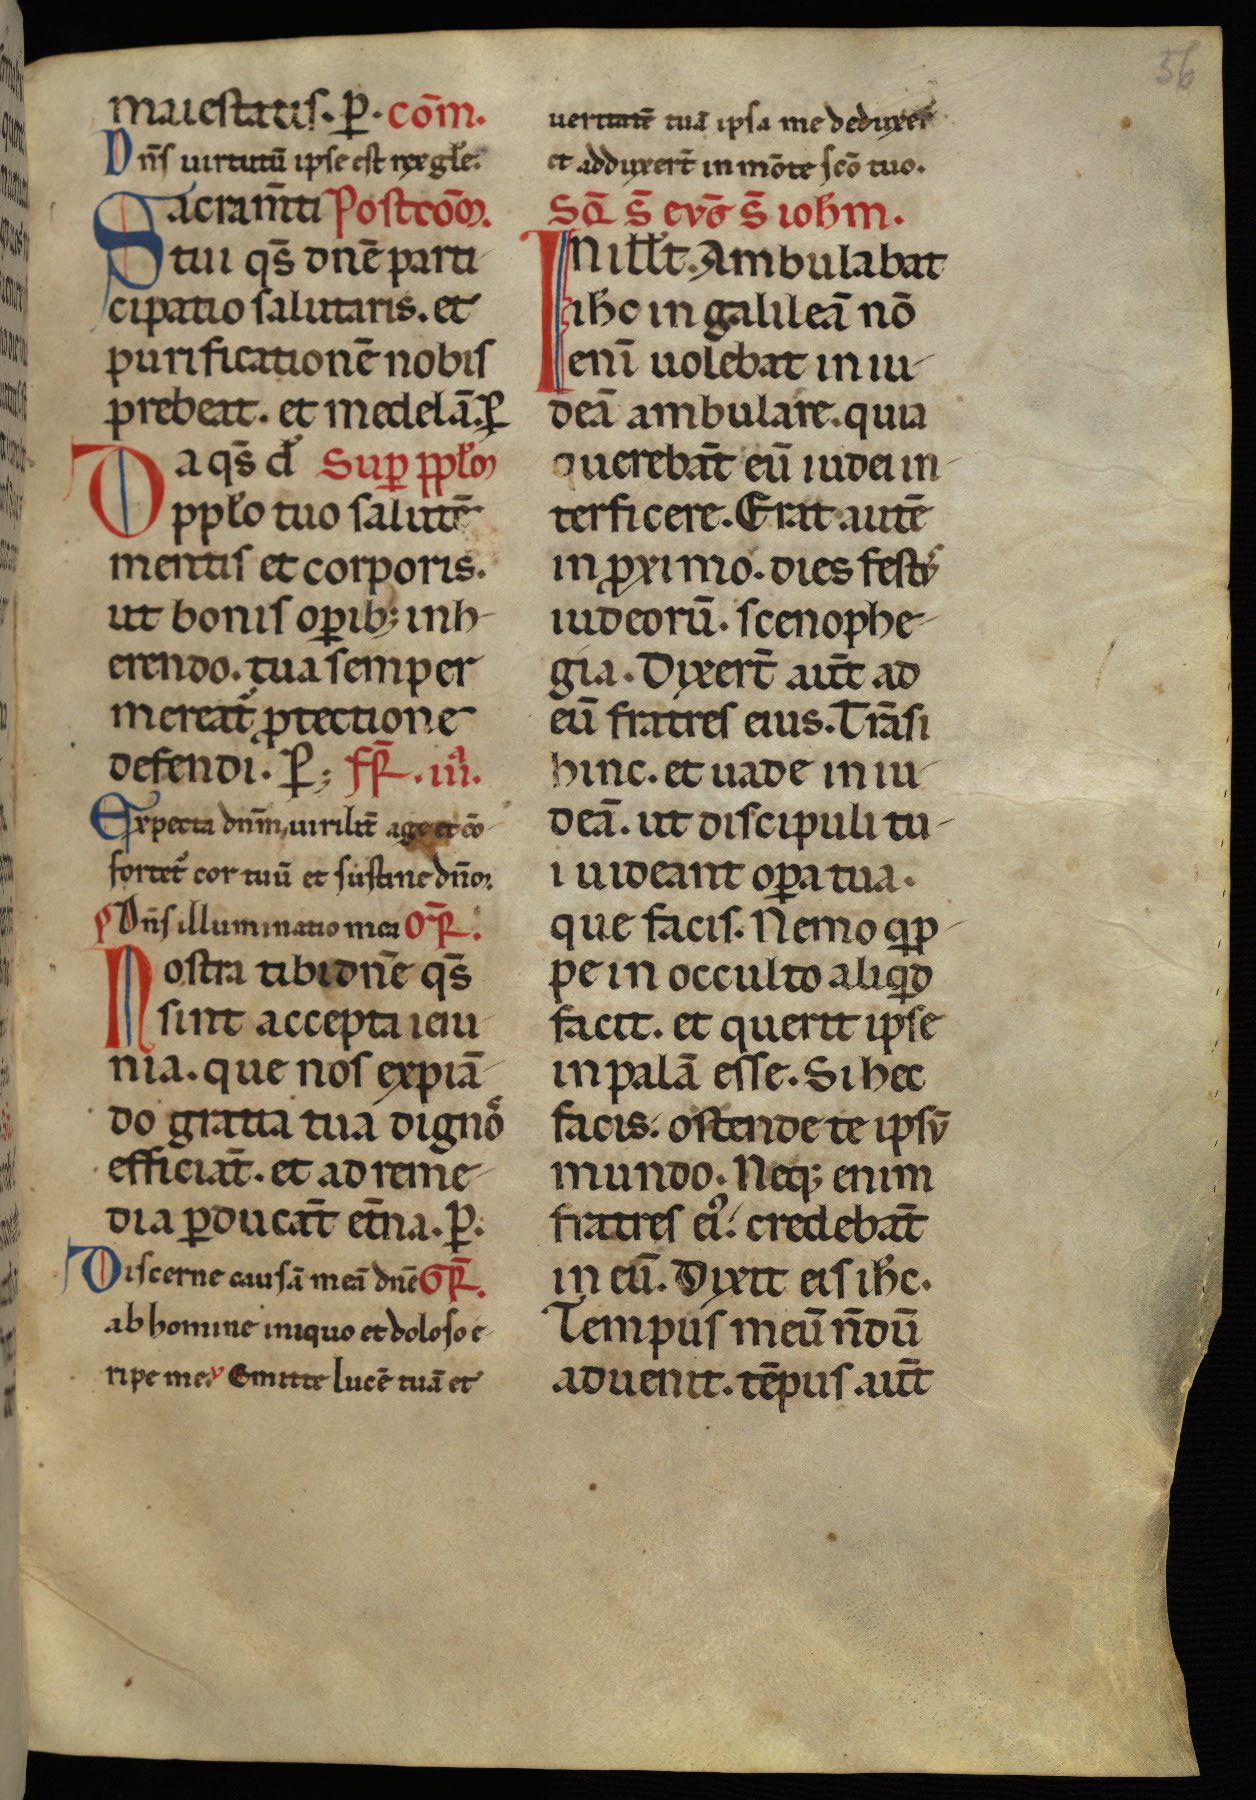 maiestatis. ꝑ. cōm.
Dn̄s uirtutū ipse est rex gl̄e.
Sacram̄ti Postcōm.
tui qs̄ dn̄e parti
cipatio salutaris. et
purificationē nobis
prebeat. et medelā. ꝑ
Da qs̄ d̄s Suꝑ ppl̄m
ppl̄o tuo salutē
mentis et corporis.
ut bonis oꝑib; inh-
erendo. tua semper
mereat᷑ ꝓtectione
defendi. ꝑ; FR̄. iii.ª
Expecta dn̄m, uirilit̄ age et cō-
fortet᷑ cor tuū et sustine dn̄m.
p Dn̄s illuminatio mea OR̄.
Nostra tibi dn̄e qs̄
sint accepta ieiu
nia. que nos expiā-
do gratia tua dignos
efficiāt. et ad reme-
dia ꝑducāt et̄na. ꝑ.
Discerne causā meā dn̄e GR̄.
ab homine iniquo et doloso e-
ripe me. v Emitte lucē tuā et
ueritatē tuā ipsa me deduxer̄
et adduxert̄ in mōte sc̄o tuo.
SQ̄ S̄ EVḠ S̄ IOHM.
IN ill̄t. Ambulabat
ih̄c in galileā nō
enī uolebat in iu-
deā ambulare. quia
querebāt eū iudei in-
terficere. Erat autē
in ꝓximo. dies festꝰ
iudeorū. scenophe-
gia. Dixert̄ aūt ad
eū fratres eius. Trāsi
hinc. et uade in iu-
deā. ut discipuli tu-
i uideant oꝑa tua.
que facis. Nemo qip-
pe in occulto aliqid
facit. et querit ipse
in palā esse. Si hec
facis. ostende te ipsū
mundo. Neq; enim
fratres eiꝰ. credebāt
in eū. Dixit eis ih̄c.
Tempus meū n̄dū
aduenit. tēpus aūt
56